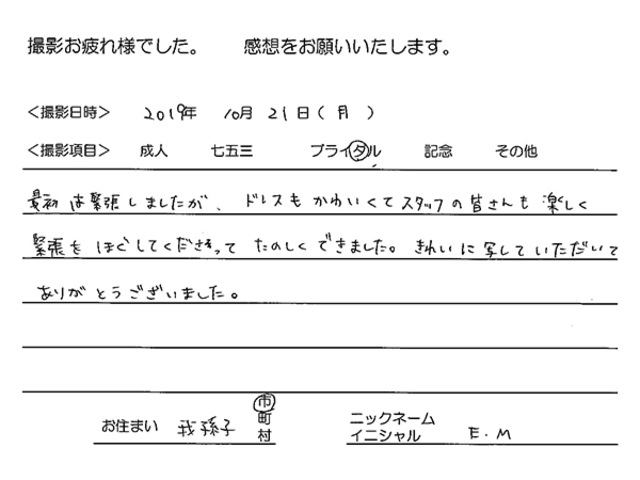 撮影お疲れ様でした。 感想をお願いいたします。
＜撮影日時＞ 2019年 10月 21日（月）
＜撮影項目＞ 成人 七五三 ブライダル 記念 その他
最初は緊張しましたが、ドレスもかわいくてスタッフの皆さんも楽しく
緊張をほぐしてくださってたのしくできました。きれいに写していただいて
ありがとうございました。
お住まい 我孫子 市町村
ニックネーム
イニシャル E.M